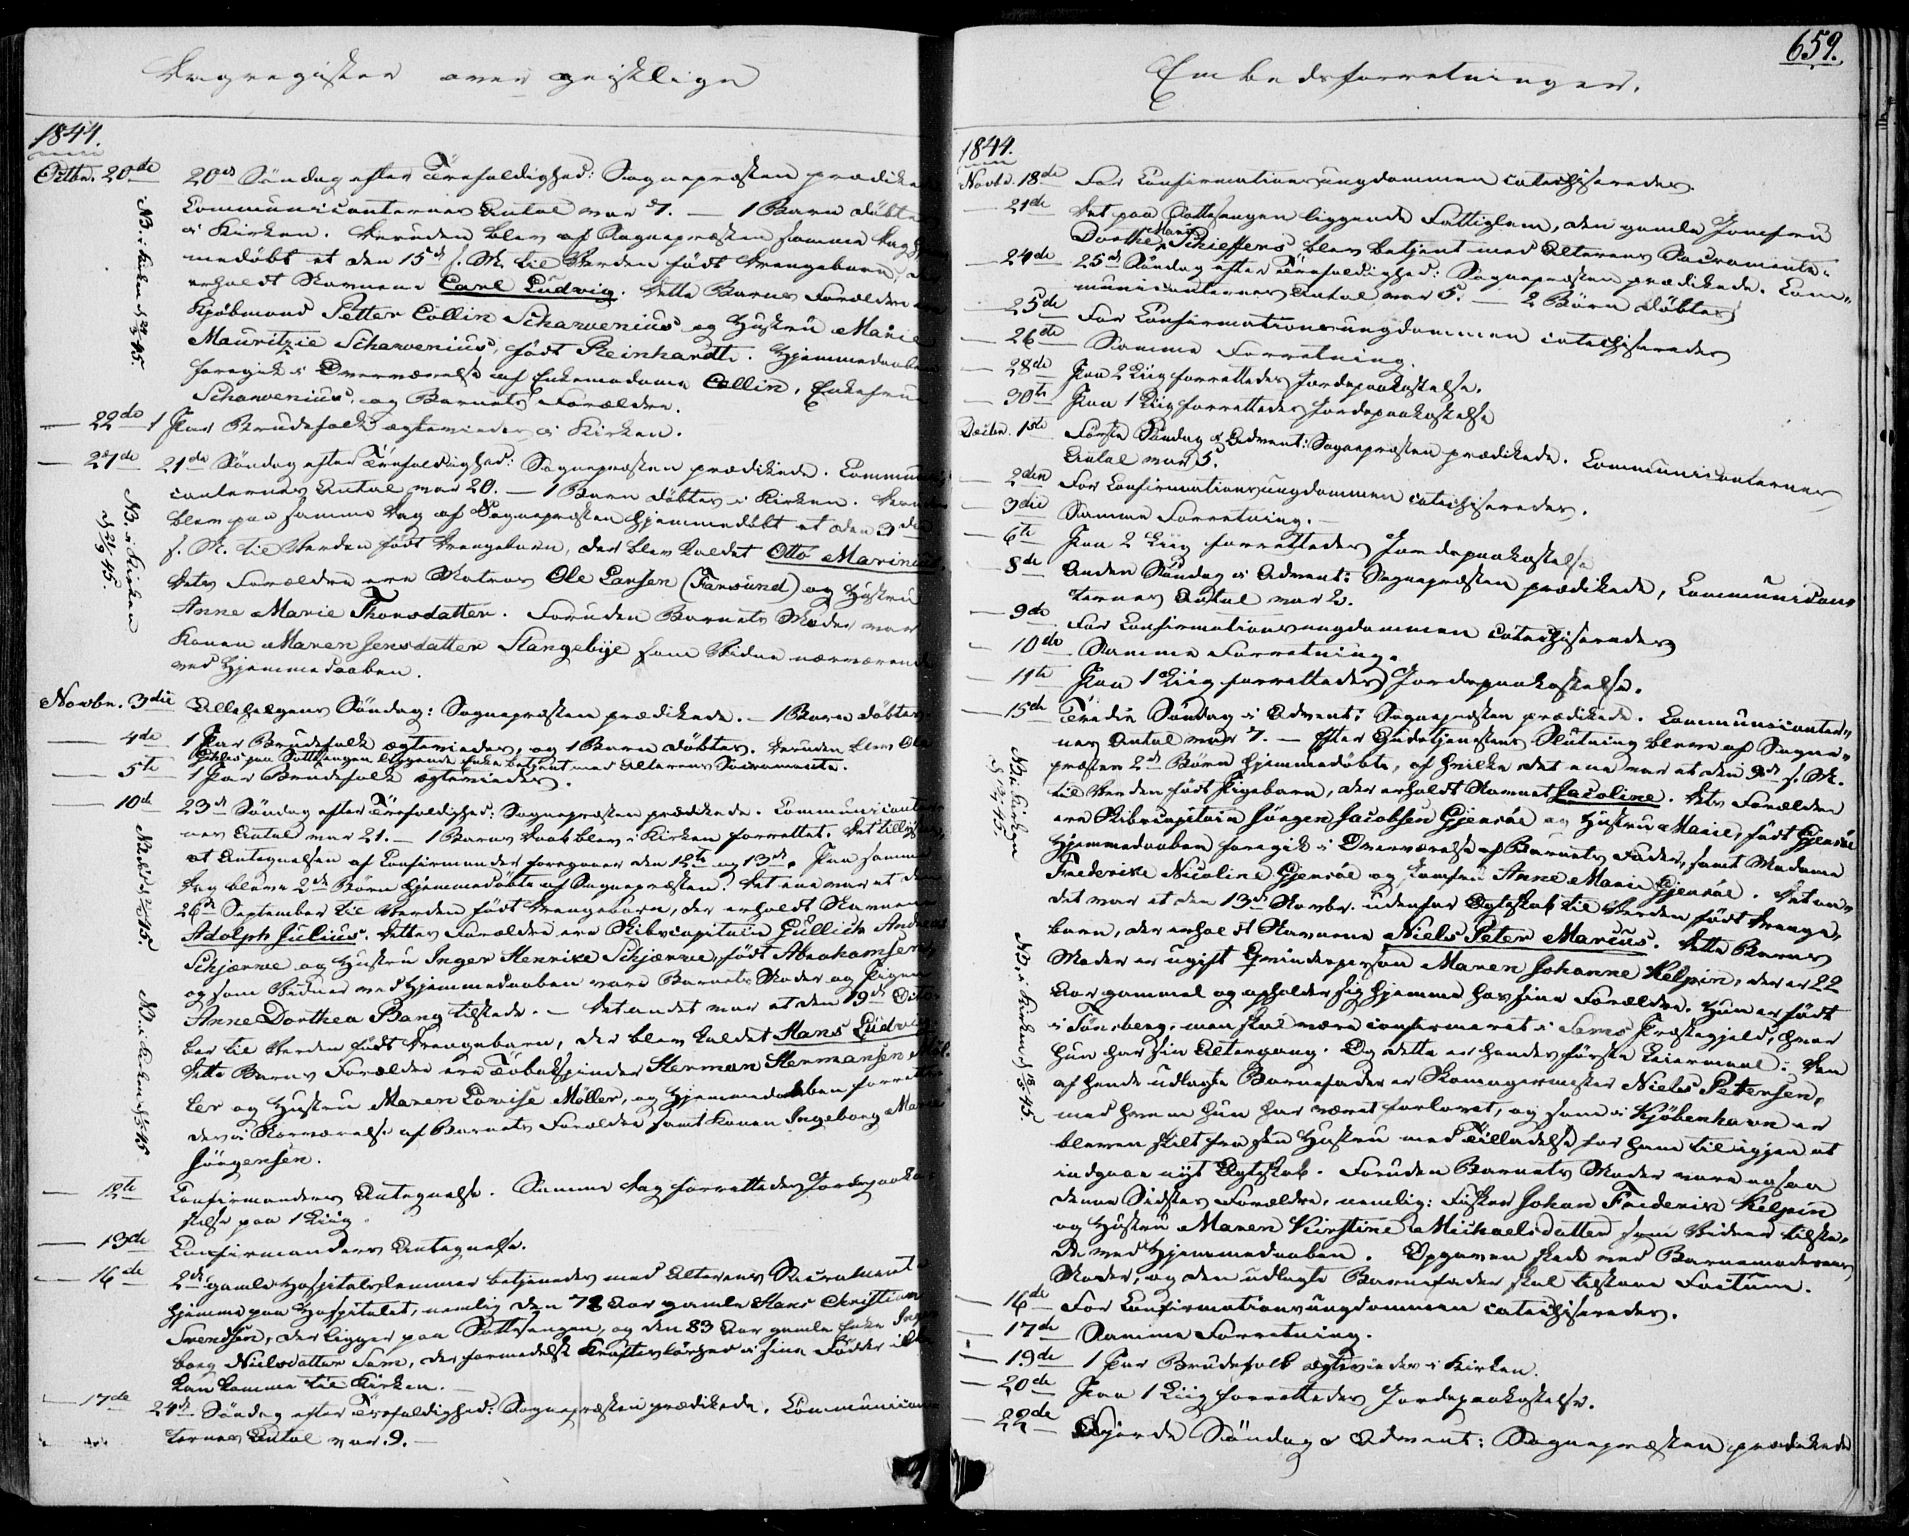 Dagregister over geistlige
1844.
Octbr. 20de 20de Søndag efter Trefoldighed: Sognepræsten prædikede
Communicanternes Antal var 7. — 1 Barn døbtes
i Kirken. Desuden blev af Sognepræsten samme Dag hjem-
medøbt et den 15de s. M. til Verden født Drengebarn, der
erholdt Navnene Carl Ludvig. Dette Barns Forældre ere
Kjøbmand Petter Collin Scharvenius og Hustru Marie
Mauritzie Scharvenius, født Reinhardt. Hjemmedaaben
foregik i Overværelse af Enkemadame Collin, Enkefrue
Scharvenius, og Barnets Forældre.
NB. i Kirken d 45.
— 22de 1 Par Brudefolk ægteviedes i Kirken.
— 27de 21de Søndag efter Trefoldighed: Sognepræsten prædikede. Communi-
canternes Antal var 20. — 1 Barn døbtes i Kirken. Desuden
blev paa samme Dag af Sognepræsten hjemmedøbt et den 3die
s. M. til Verden født Drengebarn, der blev kaldet Otto Marinius.
Dets Forældre ere Matros Ole Larsen (Farsund) og Hustru
Anne Marie Thorsdatter. Foruden Barnets Moder var
Konen Maren Jensdatter Slangebye som Vidne nærværende
ved Hjemmedaaben.
NB. i Kirken d 21/9 45.
Novbr. 3die Allehelgens Søndag: Sognepræsten prædikede. — 1 Barn døbtes.
— 4de 1 Par Brudefolk ægteviedes, og 1 Barn døbtes. Desuden blev Ole
paa Sottesengen liggende Enke betjent med Alterens Sacramente.
— 5te 1 Par Brudefolk ægteviedes.
— 10de 23de Søndag efter Trefoldighed: Sognepræsten prædikede. Communicanter-
nes Antal var 21. — 1 Barns Daab blev i Kirken forrettet. Det tillystes,
at Antegnelsen af Confirmander foregaaer den 12te og 13de. Paa samme
Dag bleve 2de Børn hjemmedøbte af Sognepræsten. Det ene var et den
26de September til Verden født Drengebarn, der erholdt Navnene
Adolph Julius. Dettes Forældre ere Skibscapitain Gullich Andreas
Schjærve og Hustru Inger Henrike Schjærve, født Abrahamsen,
og som Vidner ved Hjemmedaaben vare Barnets Moder og Pigen
Anne Dorthea Bang tilstede. — Det andet var et den 19de Octo-
ber til Verden født Drengebarn, der blev kaldet Hans Ludvig
Dette Barns Forældre ere Tobakspinder Herman Hermansen Møl-
ler og Hustru Maren Lovise Møller, og Hjemmedaaben forrettes
des i Nærværelse af Barnets Forældre samt Konen Ingeborg Marie
Jørgensen.
— 12te Confirmanders Antegnelse. Samme Dag forrettedes Jordpaaka-
stelse paa 1 Liig.
— 13de Confirmanders Antegnelse.
— 16de 2de gamle Hospitalslemmer betjenedes med Alterens Sacramente
hjemme paa Hospitalet, nemlig den 78 Aar gamle Hans Christian
Svendsen, der ligger paa Sottesengen, og den 83 Aar gamle Enke Inge-
borg Nielsdatter Sem, der formedelst Kraftesløshed i sine Fødder ikke
kan komme til Kirken.
— 17de 24de Søndag efter Trefoldighed: Sognepræsten prædikede. Communican-
ternes Antal var 9. —
659.
Embedsforretninger.
1844.
Novbr. 18de For Confirmationsungdommen catechiseredes.
— 21de Det paa Sottesengen liggende Fattiglem, den gamle Jomfru
Dorthe Marie Schieffers blev betjent med Alterens Sacramente.
— 24de 25de Søndag efter Trefoldighed: Sognepræsten prædikede. Com-
municanternes Antal var 5. — 2 Børn døbtes.
— 25de For Confirmationsungdommen catechiseredes
— 26de Samme Forretning.
— 28de Paa 2 Liig forrettedes Jordpaakastelse.
— 30te Paa 1 Liig forrettedes Jordpaakastelse
Decbr. 1ste Første Søndag i Advent: Sognepræsten prædikede. Communicanternes
Antal var 5.
— 2den For Confirmationsungdommen catechiseredes.
— 3die Samme Forretning. —
— 6te Paa 2 Liig forrettedes Jordpaakastelse
— 8de Anden Søndag i Advent: Sognepræsten prædikede, Communican-
ternes Antal var 2.
— 9de For Confirmationsungdommen catechiseredes
— 10de Samme Forretning.
— 11te Paa 1 Liig forrettedes Jordpaakastelse.
— 15de Tredie Søndag i Advent: Sognepræsten prædikede. Communicanter-
nes Antal var 7. — Efter Gudstjenestens Slutning bleve af Sogne-
præsten 2de Børn hjemmedøbte, af hvilke det ene var et den 9de s. M.
til Verden født Pigebarn, der erholdt Navnet Jacoline. Dets Forældre
ere Skibscapitain Jørgen Jacobsen Gjensøe og Hustru Marie, født Gjensøe
Hjemmedaaben foregik i Overværelse af Barnets Fader, samt Madame
Frederike Nicoline Gjensøe og Jomfru Anne Marie Gjensøe. Det an-
det var et den 13de Novbr. udenfor Ægteskab til Verden født Drenge-
barn, der erholdt Navnene Niels Peter Marcus. Dette Barns
Moder er ugift Qvindeperson Maren Johanne Kelpin, der er 22
Aar gammel og opholder sig hjemme hos sine Forældre. Hun er født
i Tønsberg, men skal være confirmeret i Sems Præstegjeld, hvor
hun har sin Altergang. Og dette er hendes første Leiermaal. Den
af hende udlagte Barnefader er Skomagermester Niels Petersen,
med hvem hun har været forlovet, og som i Kjøbenhavn er
bleven skilt fra sin Hustru med Tilladelse for ham til igjen at
indgaae nyt Ægteskab. Foruden Barnets Moder vare ogsaa
denne Sidstes Forældre, nemlig: Fisker Johan Frederik Kelpin
og Hustru Maren Kirstine Michaelsdatter som Vidner tilste-
de ved Hjemmedaaben. Opgaven skede ved Barnemoderens
Moder, og den udlagte Barnefader skal tilstaae Factum.
NB. i Kirken 45.
NB. i Kirken d 45.
— 16de For Confirmationsungdommen catechiseredes.
— 17de Samme Forretning.
— 19de 1 Par Brudefolk ægteviedes i Kirken.
— 20de Paa 1 Liig forrettedes Jordpaakastelse.
— 22de Fjerde Søndag i Advent: Sognepræsten prædikede